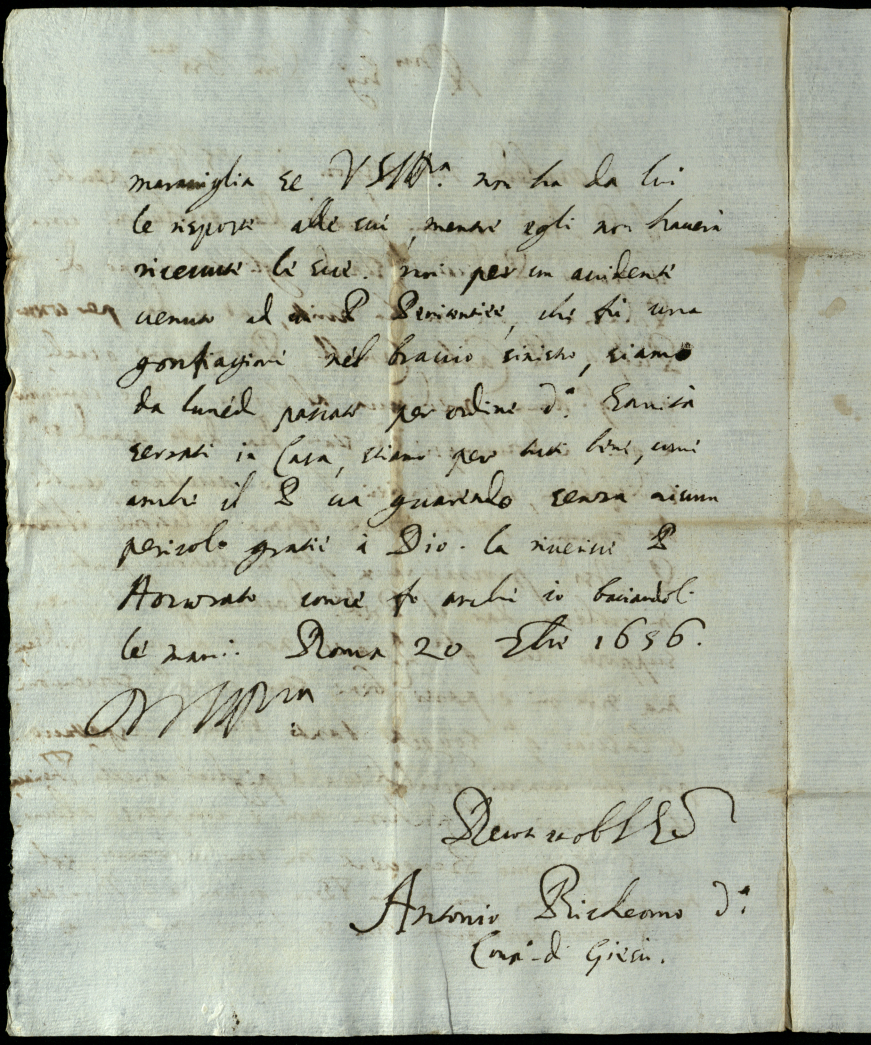 maraviglia se VSIll.ma non ha da lui
le risposte alle sue, mentre egli non haverà
ricevute le sue. noi per un accidente
venuto al P Penitentiere, che fù una
gonfiagione nel braccio sinistro, siamo
da lunedi passato per ordine d.a Sanità
serrati in Casa, stiamo però tutti bene, come
anche il P và guarendo, senza niun
pericolo gratie à Dio. la riverisce P
Honorato come fo anche io baciandoli
le mani. Roma 20 1656.
Antonio Richeomo d.a
Comp.a di Giesu.